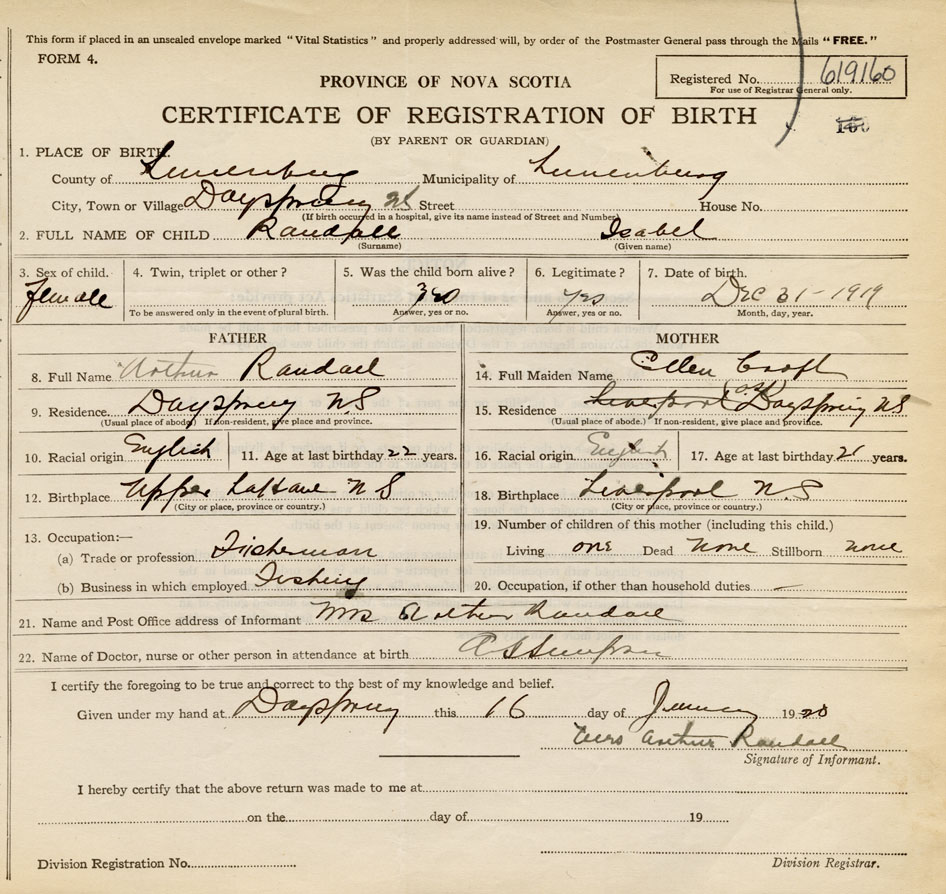 This form if placed in an unsealed envelope marked "Vital Statistics" and properly addressed will, by order of the Postmaster General pass through the Mails "FREE."
FORM 4.
PROVINCE OF NOVA SCOTIA
Registered No. 619160
For use of Registrar General only.
CERTIFICATE OF REGISTRATION OF BIRTH
(BY PARENT OR GUARDIAN)
1. PLACE OF BIRTH.
County of Lunenburg Municipality of Lunenburg
City, Town or Village Dayspring NS Street House No.
(If birth occurred in a hospital, give its name instead of Street and Number)
2. FULL NAME OF CHILD Randall Isabel
(Surname) (Given name)
3. Sex of child. 4. Twin, triplet or other? 5. Was the child born alive? 6. Legitimate? 7. Date of birth.
Female yes yes Dec 31 - 1919
To be answered only in the event of plural birth. Answer, yes or no. Answer, yes or no. Month, day, year.
FATHER MOTHER
8. Full Name Arthur Randall 14. Full Maiden Name Ellen Croft
9. Residence. Dayspring NS 15. Residence Liverpool Dayspring NS
(Usual place of abode) If non-resident, give place and province. (Usual place of abode.) If non-resident, give place and province.
10. Racial origin English 11. Age at last birthday 22 years. 16. Racial origin English 17. Age at last birthday 21 years.
12. Birthplace Upper LaHave NS 18. Birthplace Liverpool N.S
(City or place, province or country.) (City or place, province or country.)
13. Occupation:— 19. Number of children of this mother (including this child.)
(a) Trade or profession Fisherman Living one Dead None Stillborn none
(b) Business in which employed Fishing 20. Occupation, if other than household duties
21. Name and Post Office address of Informant Mrs Arthur Randall
22. Name of Doctor, nurse or other person in attendance at birth
I certify the foregoing to be true and correct to the best of my knowledge and belief.
Given under my hand at Dayspring this 16 day of January 1920
Mrs Arthur Randall
Signature of Informant.
I hereby certify that the above return was made to me at
on the day of 19
Division Registration No.
Division Registrar.